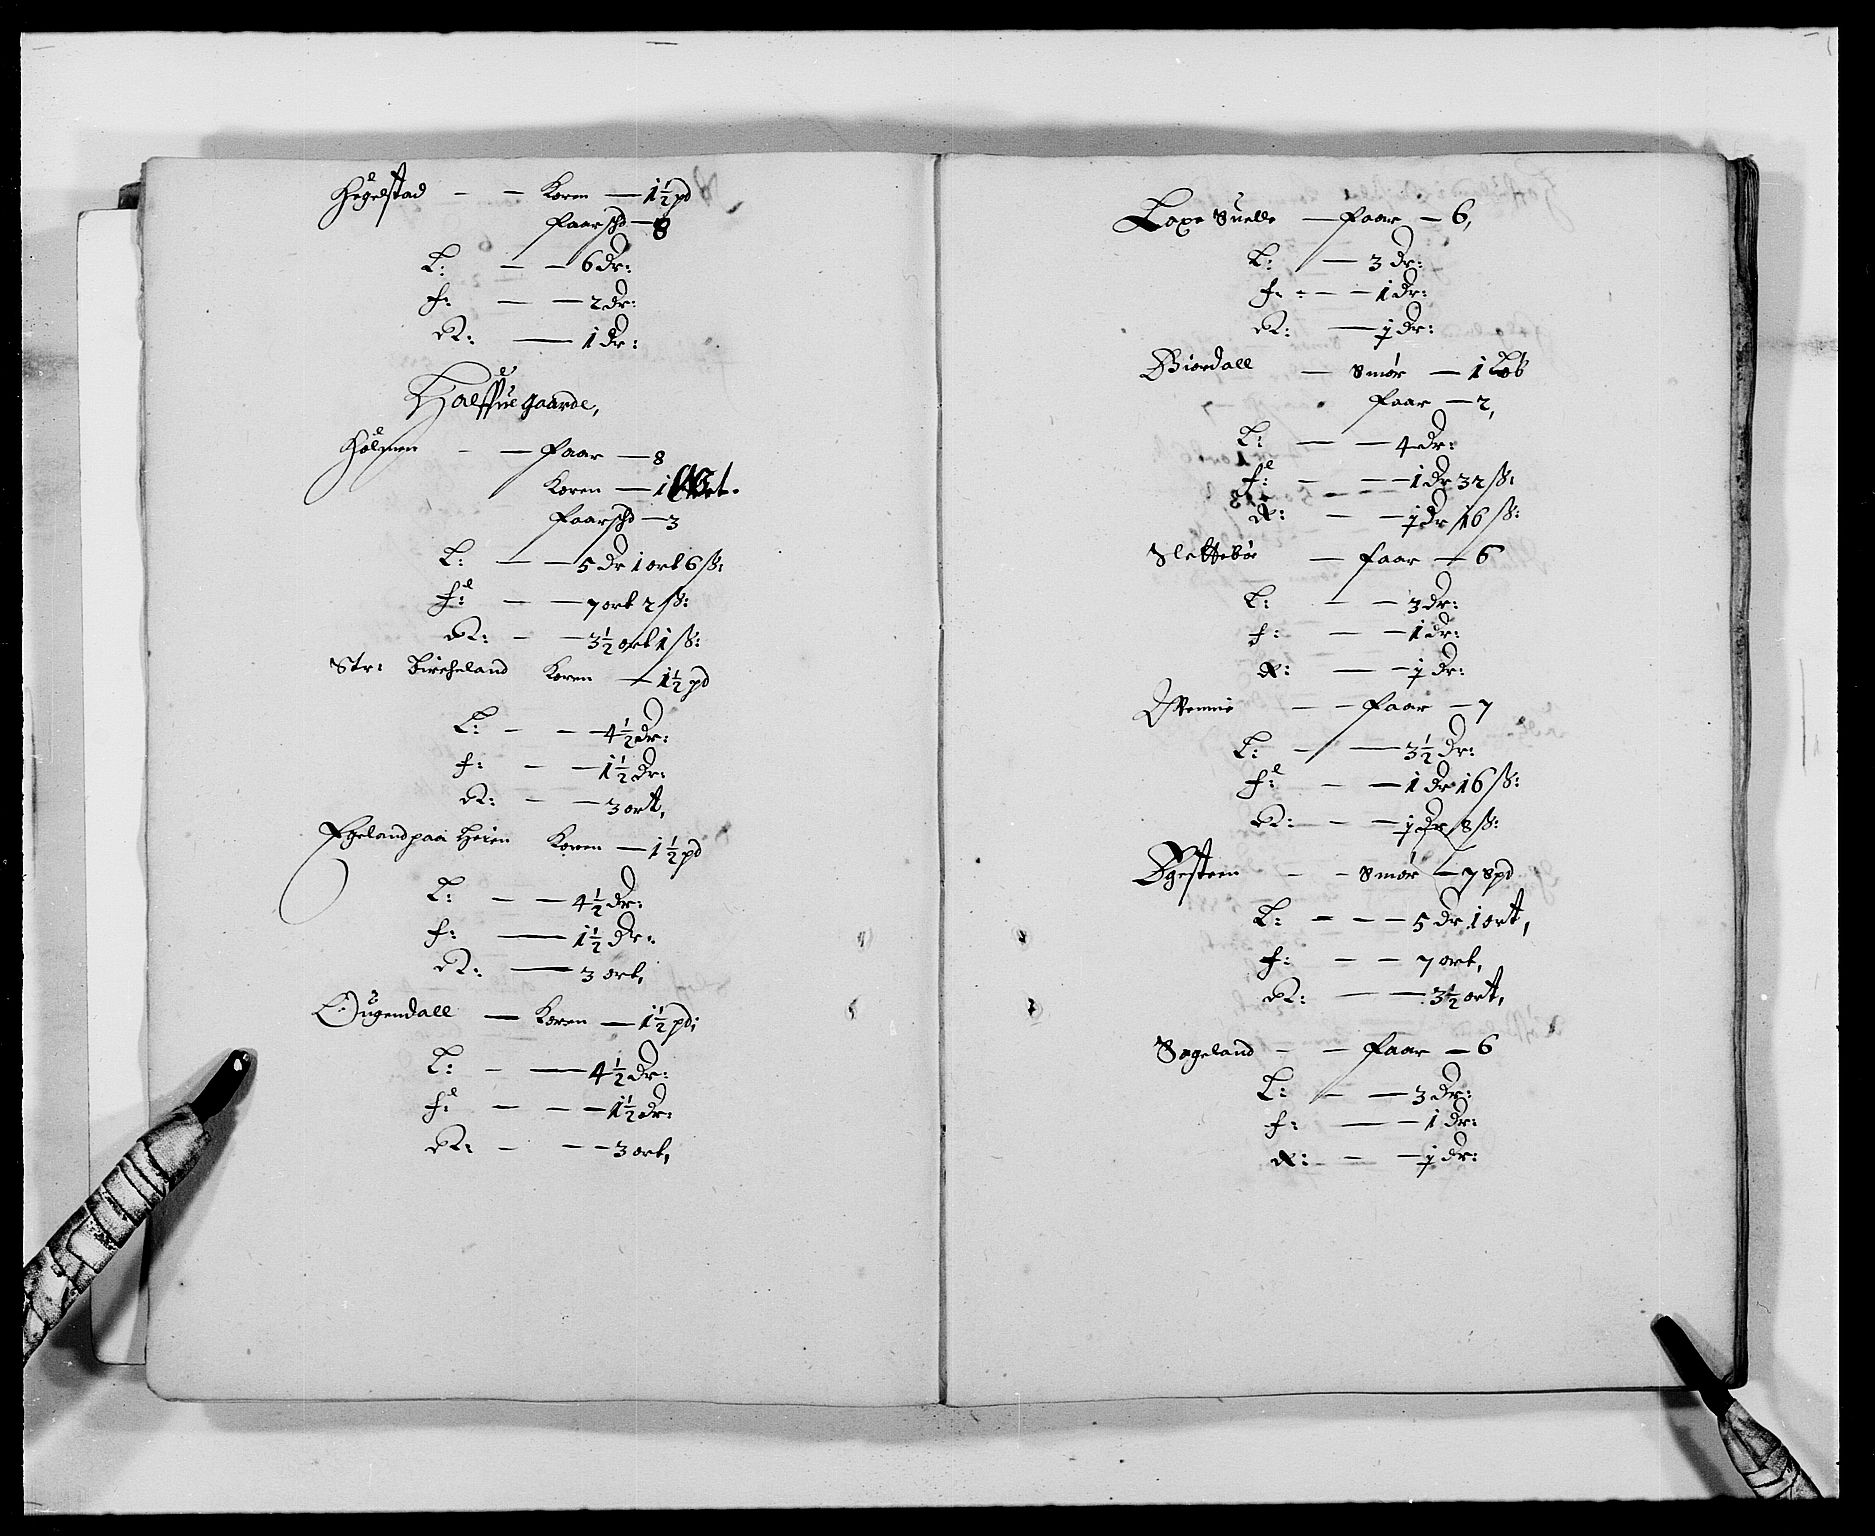 Hegelstad - - Koren - 1½ pd
Faarschd - 8
L: - - 6 dr:
f: - - 2 dr:
R: - 1 dr:
Halffue Gaarde,
Holmen - - Faar - 8
Koren - 1
Faarschd - 3
L: - - 5 dr 1 ort 6 ß:
f: - - 7 ort 2 ß:
R: - - 3½ ort 1 ß:
Str: Bircheland Koren - 1½ pd
L: - - 4½ dr:
f: - - 1½ dr:
R: - - 3 ort,
Egeland paa Heien Koren - 1½ pd
L: - - 4½ dr:
f: - 1½ dr:
R: - 3 ort,
Ougendall - Koren - 1½ pd;
L: - - 4½ dr:
f: - - - 1½ dr:
R: - - - 3 ort,
Laxe Suelle - Faar - 6,
L: - 3 dr:
f: - - 1 dr:
R: - ½ dr:
Biordall - Smør - 1 Løb
Faar - 2,
L: - - 4 dr:
f: - - 1 dr 32 ß:
R: - - ½ dr 16 ß:
Slettebøe - Faar - 6
L: - - 3 dr:
f: - - 1 dr:
R: - - ½ dr:
- - Faar - 7
L: - - 3½ dr:
f: - - 1 dr 16 ß:
R: - - ½ dr 8 ß:
Øgsteen - - Smør - 7 Spd
L: - - - 5 dr 1 ort,
f: - - 7 ort,
R: - - 3½ ort,
Sageland - - Faar - 6
L: - - 3 dr:
f: - - 1 dr:
R: - - ½ dr: